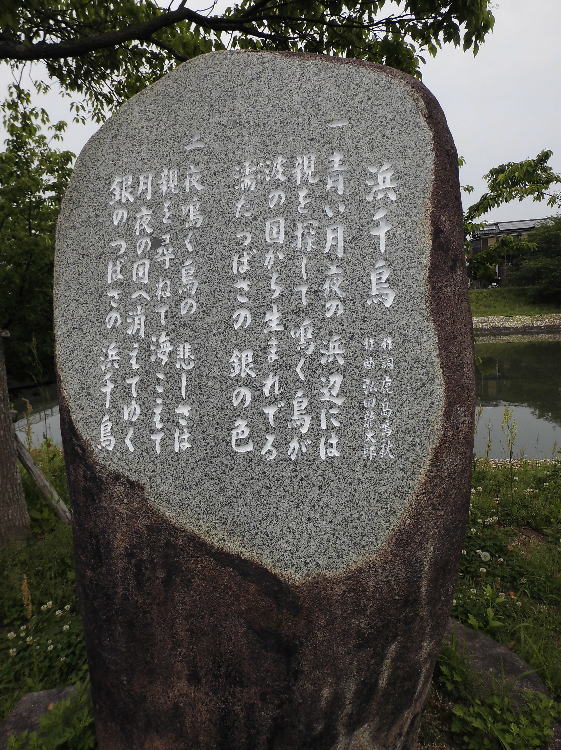 浜千鳥
作詞 鹿島鳴秋
作曲 弘田龍太郎
一 青い月夜の 浜辺には
親を探して 鳴く鳥が
波の国から 生まれでる
濡れたつばさの 銀の色
二 夜鳴く鳥の 悲しさは
親を尋ねて 海こえて
月夜の国へ 消えてゆく
銀のつばさの 浜千鳥